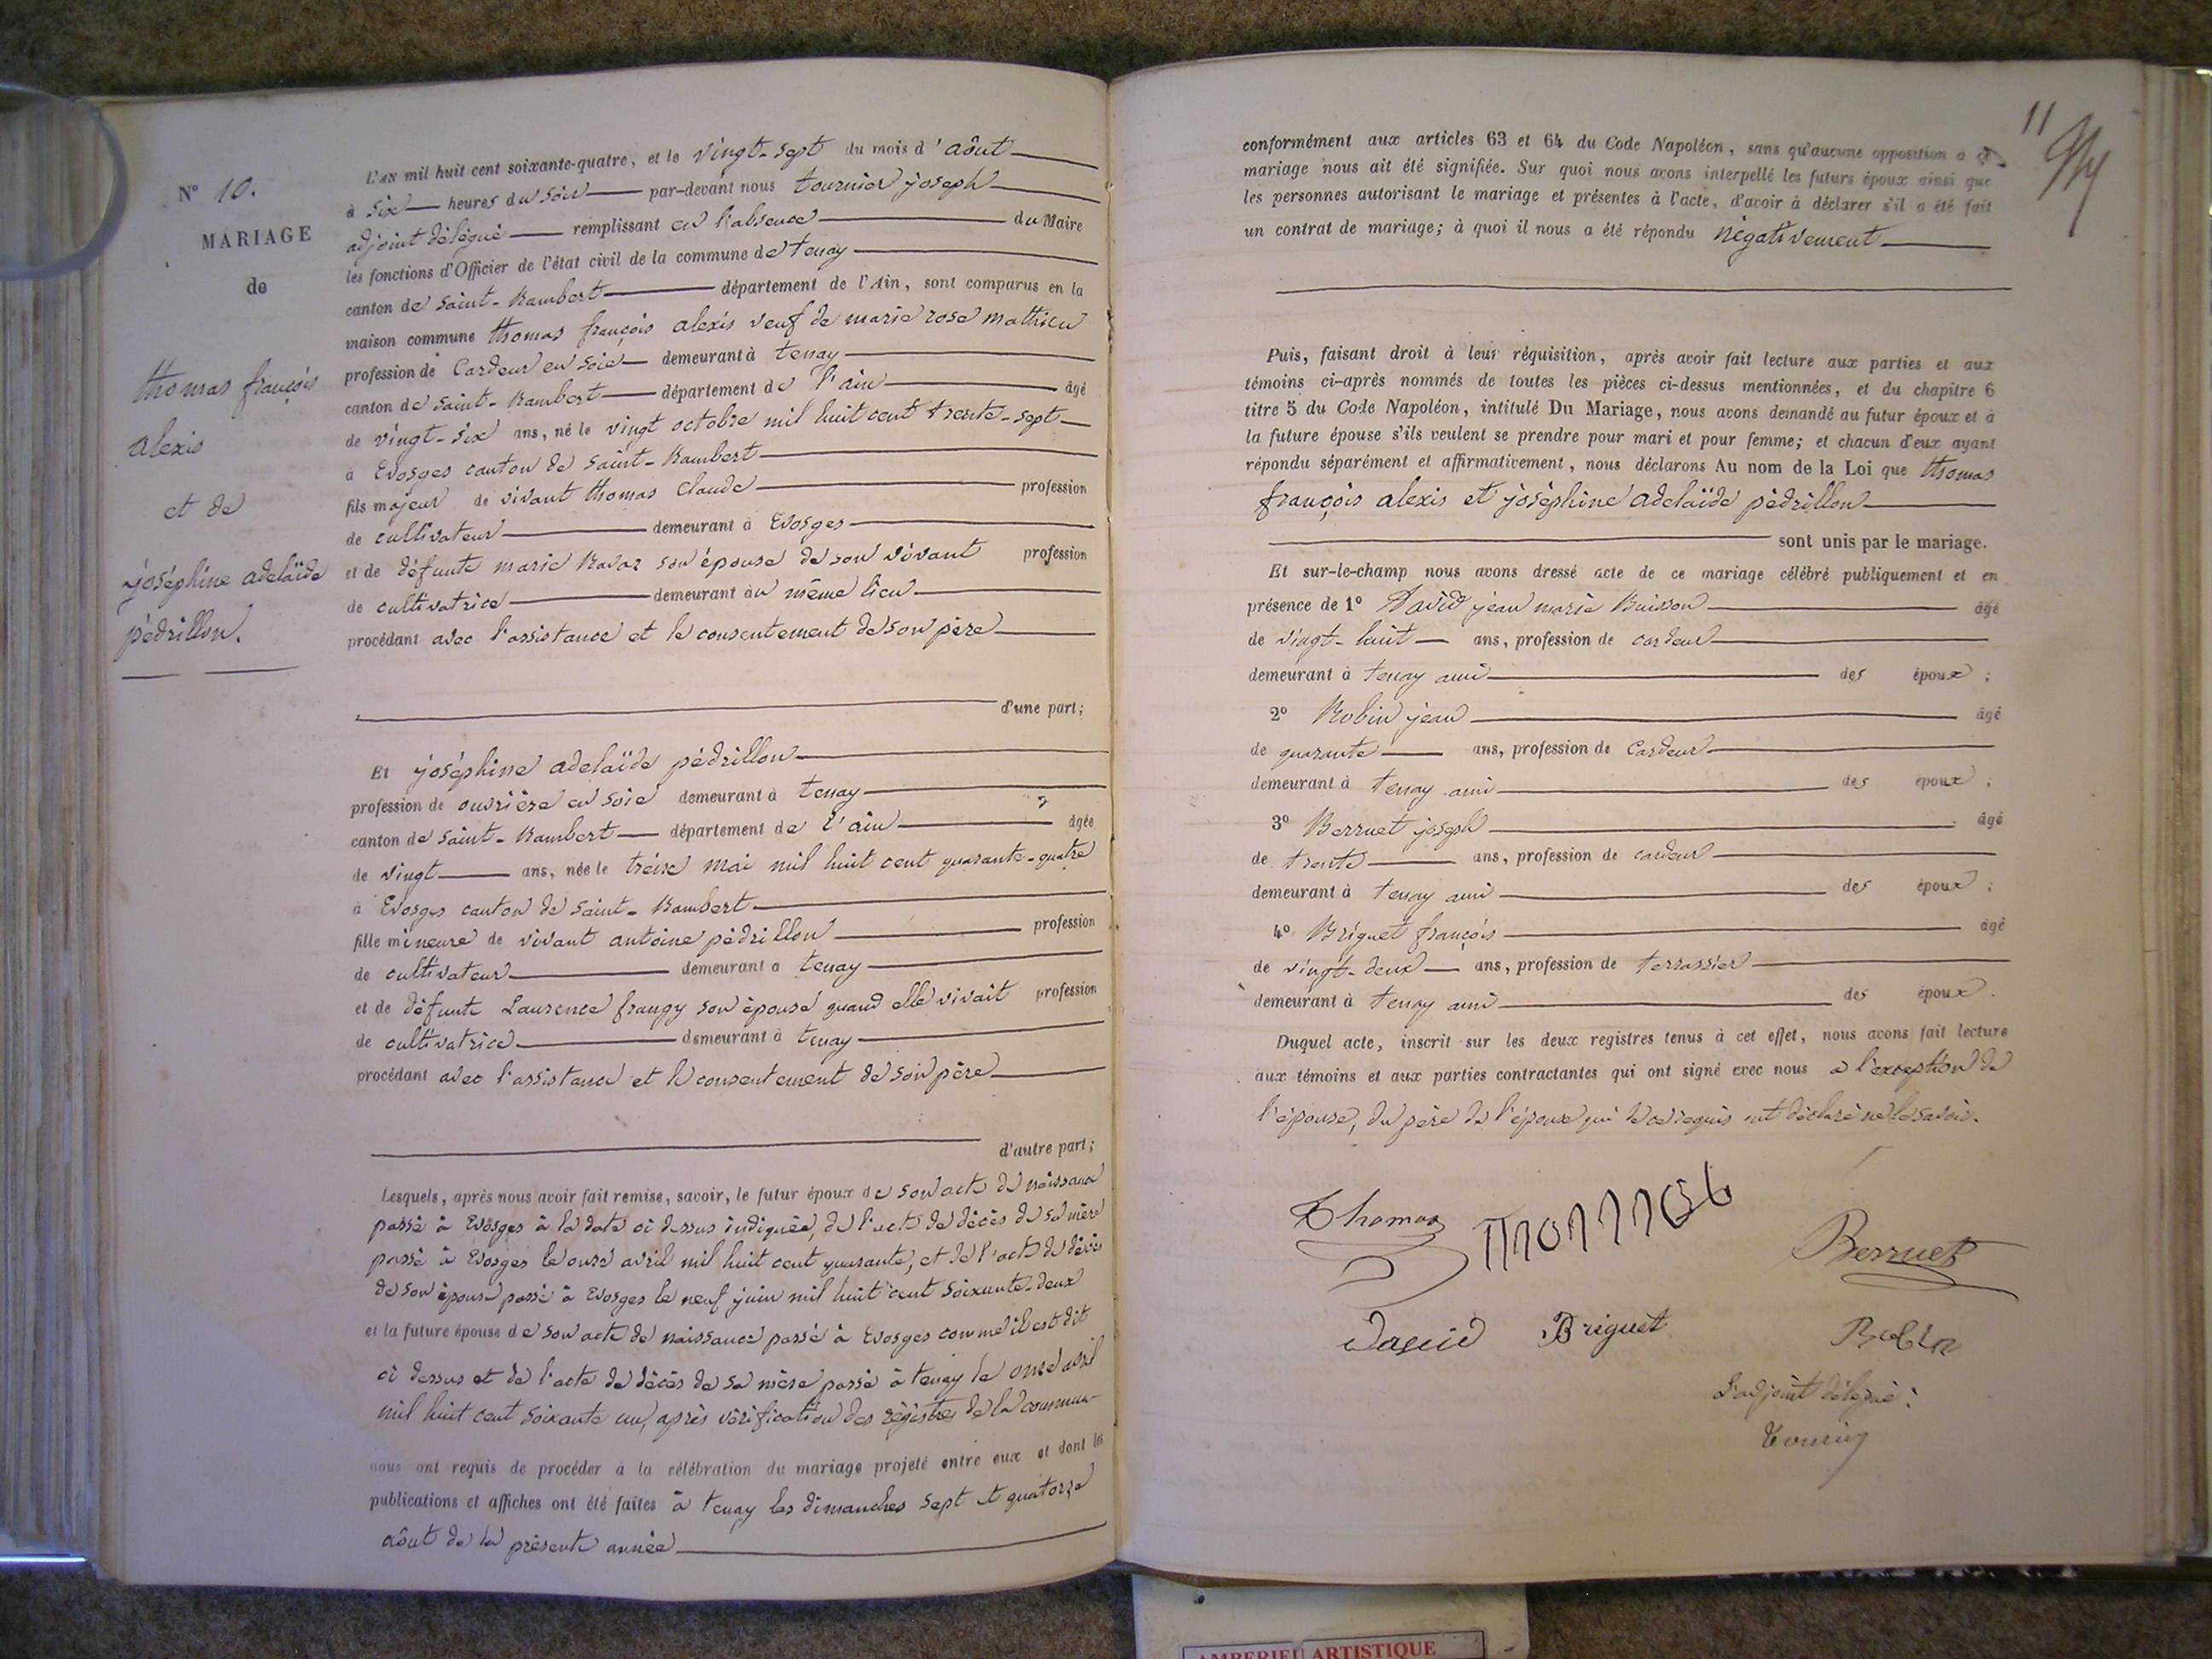 N° 10.
MARIAGE
de
thomas françois
alexis
et de
joséphine adelaïde
pédrillon.
L'AN mil huit cent soixante-quatre, et le vingt-sept du mois d'aôut
à six heures du soir par-devant nous tournier joseph
adjoint délégué remplissant en l'absence du Maire
les fonctions d'Officier de l'état civil de la commune de tenay
canton de saint-Rambert département de l'Ain, sont comparus en la
maison commune thomas françois alexis veuf de marie rose mathieu
profession de Cardeur en soie demeurant à tenay
canton de saint-Rambert département de l'ain âgé
de vingt-six ans, né le vingt octobre mil huit cent trente-sept
à Evosges canton de saint-Rambert
fils majeur de vivant thomas claude profession
de cultivateur demeurant à Evosges
et de défunte marie Ravaz son épouse de son vivant profession
de cultivatrice demeurant au même lieu
procédant avec l'assistance et le consentement de son père
d'une part;
Et joséphine adelaïde pédrillon
profession de ouvrière en soie demeurant à tenay
canton de saint-Rambert département de l'ain âgée
de vingt ans, née le treize mai mil huit cent quarante-quatre
à Evosges canton de saint-Rambert
fille mineure de vivant antoine pédrillon profession
de cultivateur demeurant à tenay
et de défunte Laurence frangy son épouse quand elle vivait profession
de cultivatrice demeurant à tenay
procédant avec l'assistance et le consentement de son père
d'autre part;
Lesquels, après nous avoir fait remise, savoir, le futur époux de son acte de naissance
passé à Evosges à la date ci dessus indiquée, de l'acte de décès de sa mère
passé à Evosges le onze avril mil huit cent quarante, et de l'acte de décès
de son épouse passé à Evosges le neuf juin mil huit cent soixante-deux
et la future épouse de son acte de naissance passé à Evosges comme il est dit
ci dessus et de l'acte de décès de sa mère passé à tenay le onze avril
mil huit cent soixante un, après vérification des régistres de la commune
nous ont requis de procéder à la célébration du mariage projeté entre eux et dont les
publications et affiches ont été faites à tenay les dimanches sept et quatorze
aôut de la présente année
11
conformément aux articles 63 et 64 du Code Napoléon, sans qu'aucune opposition à ce
mariage nous ait été signifiée. Sur quoi nous avons interpellé les futurs époux ainsi que
les personnes autorisant le mariage et présentes à l'acte, d'avoir à déclarer s'il a été fait
un contrat de mariage; à quoi il nous a été répondu négativement
Puis, faisant droit à leur réquisition, après avoir fait lecture aux parties et aux
témoins ci-après nommés de toutes les pièces ci-dessus mentionnées, et du chapitre 6
titre 5 du Code Napoléon, intitulé Du Mariage, nous avons demandé au futur époux et à
la future épouse s'ils veulent se prendre pour mari et pour femme; et chacun d'eux ayant
répondu séparément et affirmativement, nous déclarons Au nom de la Loi que thomas
françois alexis et joséphine adelaïde pédrillon
sont unis par le mariage.
Et sur-le-champ nous avons dressé acte de ce mariage célébré publiquement et en
présence de 1° David jean marie Buisson âgé
de vingt-huit ans, profession de cardeur
demeurant à tenay ami des époux;
2° Robin jean âgé
de quarante ans, profession de Cardeur
demeurant à tenay ami des époux;
3° Berruet joseph âgé
de trente ans, profession de cardeur
demeurant à tenay ami des époux;
4° Briguet françois âgé
de vingt-deux ans, profession de terrassier
demeurant à tenay ami des époux.
Duquel acte, inscrit sur les deux registres tenus à cet effet, nous avons fait lecture
aux témoins et aux parties contractantes qui ont signé avec nous à l'exception de
l'épouse, du père de l'époux qui de ce requis ont déclaré ne le savoir.
Thomas
Berruet
David Briguet Robin
L'adjoint délégué:
Tournier
AMBERIEU ARTISTIQUE